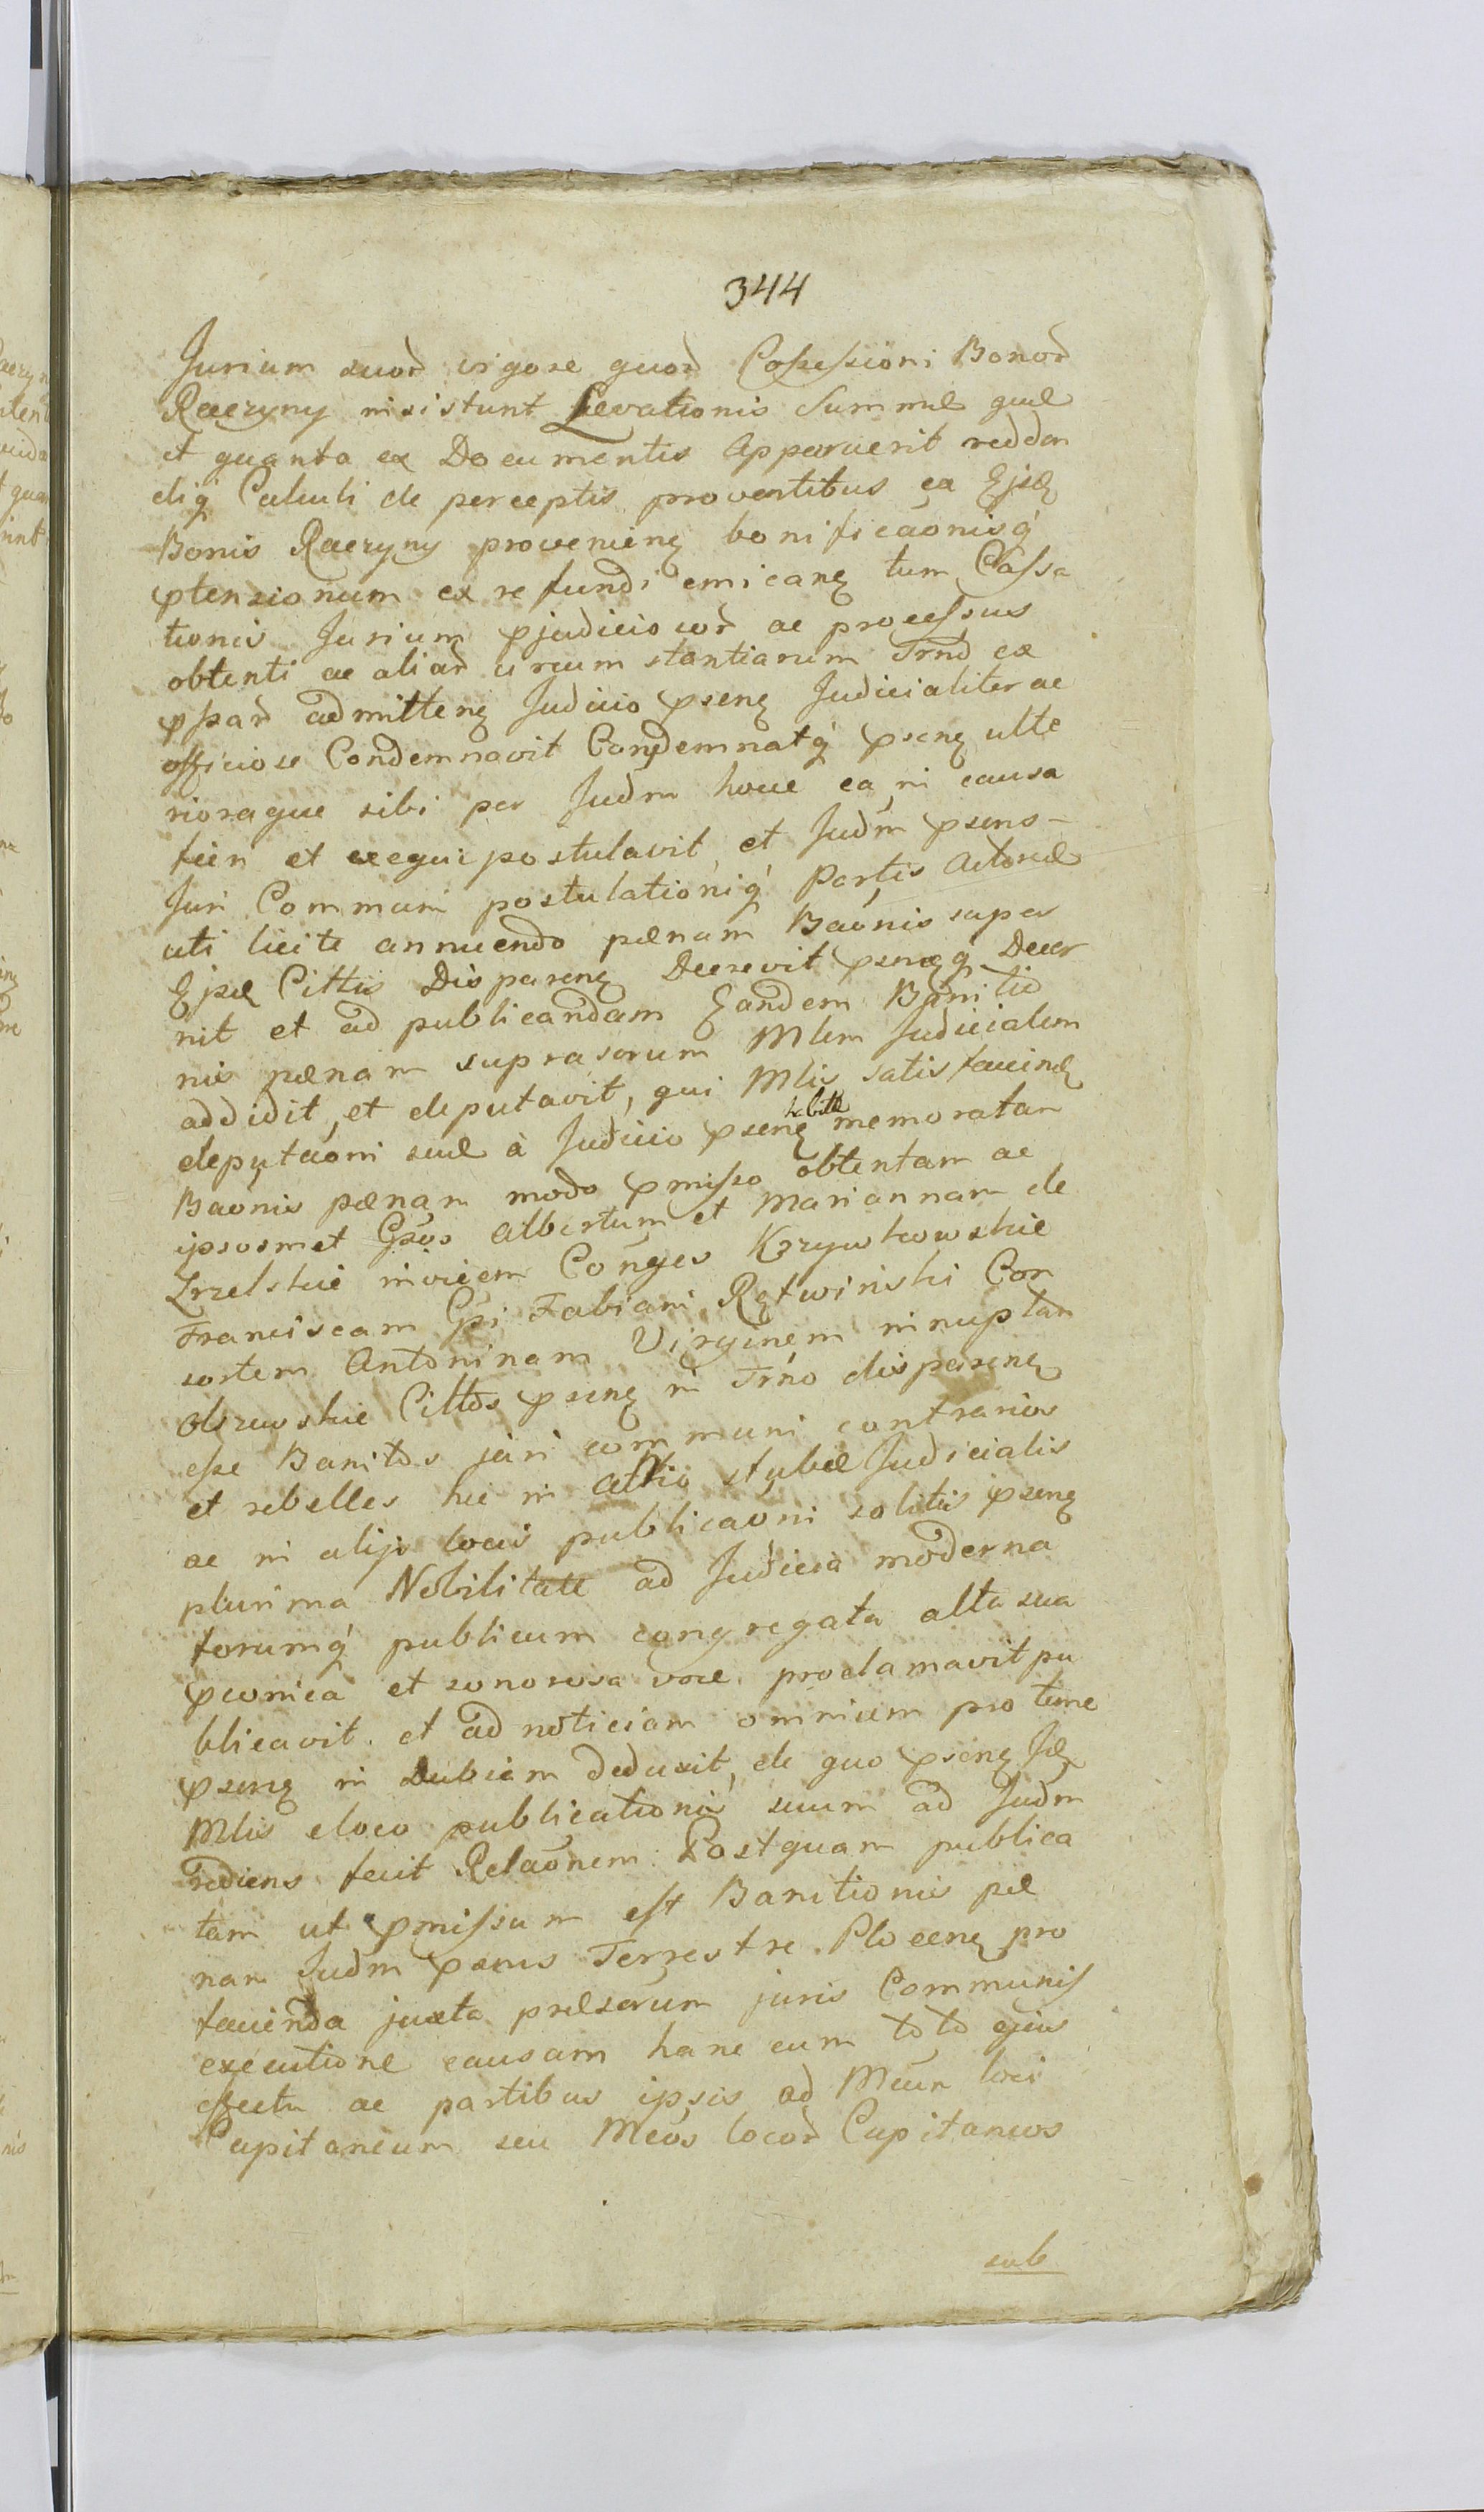 344
Jurium suoꝝ vigore quoꝝ Possessioni Bonoꝝ
Raczyny insistunt Levationis Summæ quæ
et quanta ex Documentis Apparuerit reddẽn
diq́ Calculi de perceptis proventibus ex Ejsdꝫ
Bonis Raczyny provenienꝫ bonificaõnisq́
ꝓtensionum ex re fundi emicanꝫ tum Cassa
tionis Jurium ꝓjudiciosoꝝ ac processus
obtenti ac aliaꝝ circumstantiarum Trnd ex
ꝓpaꝝ admittenꝫ Judicio ꝓsenꝫ Judicialiter ac
officiose Condemnavit Condemnatq́ ꝓsenꝫ ulte
rioraque sibi per Judm hocce ea in causa
fieri et exequi postulavit, et Judm ꝓsens
Juri Communi postulationiq́ Partis Actoreæ
uti licite annuendo pænam Baõnis super
Ejsdꝫ Cittis Disparenꝫ Decrevit ꝓsenꝫq́ Decer
nit et ad publicandam Eandem Banitio
nis pænam suprasorum Mlem Judicialem
addidit, et deputavit, qui Mlis satisfaciendꝫ
deputaõni suæ à Judicio ꝓsenꝫ habitæ memoratam
Baõnis pænam modo ꝓmisso obtentam ac
ipsosmet Gsõs Albertum et Mariannam de
Zrzelskie invicem Conges Krzywkowskie
Franciscam Gsi Fabiani Rętwiński Con
sortem Antoninam Virginem innuptam
Olszewskie Cittos ꝓsenꝫ in Trno disparenꝫ
esse Banitos juri communi contrarios
et rebelles hic in Attio stubæ Judicialis
ac in alijs locis publicaõni solitis ꝓsenꝫ
plurima Nobilitate ad Judicia moderna
forumq́ publicum congregata alta sua
ꝓconica et sonorosa voce proclamavit pu
blicavit et ad noticiam omnium pro tunc
ꝓsenꝫ in Dubiam deduxit, de quo ꝓsenꝫ Jdꝫ
Mlis eloco publicationis suum ad Judm
rediens fecit Relaõnem. Postquam publica
tam ut ꝓmissum est Banitionis pæ
nam Judm ꝓsens Terrestre Plocenꝫ pro
facienda juxta præscrum juris Communis
executione causam hanc cum toto ejus
effectu ac partibus ipsis ad Mcum loci
Capitaneum seu Mcos locoꝝ Capitaneos
sub